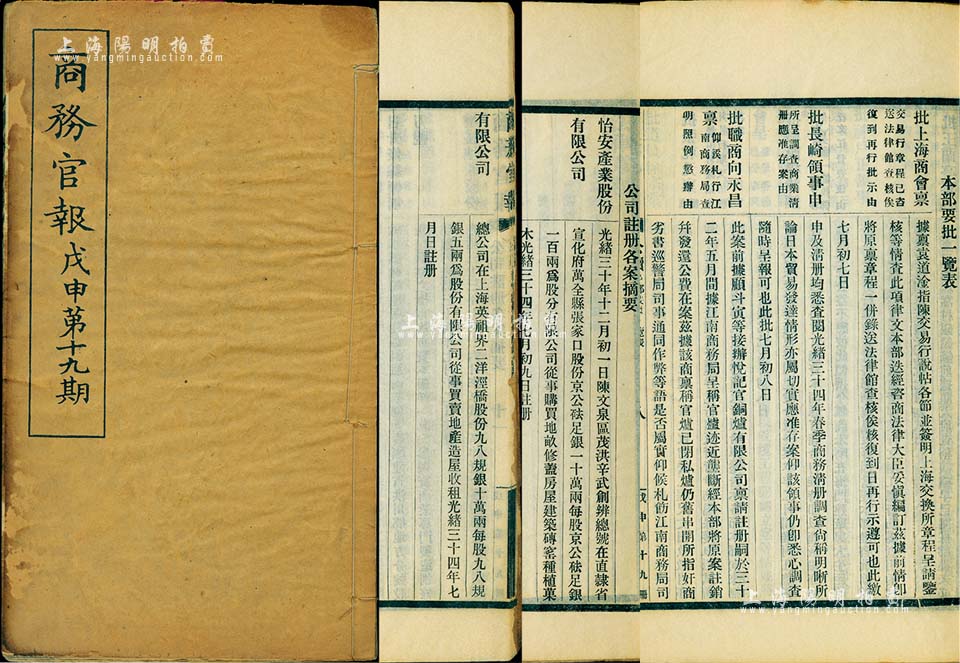 商務官報戊申第十九期
上海陽明拍賣
www.yangmingauction.com
本部要批一覽表
批上海商會稟
交易行章程已咨
送法律館查核俟
復到再行批示由
據稟袁道淦指陳交易行說帖各節並簽明上海交換所章程呈請鑒
核等情查此項律文本部迭經咨商法律大臣妥愼編訂茲據前情卽
將原稟章程一併錄送法律館查核俟核復到日再行示遵可也此繳
七月初七日
批長崎領事申
所呈調查商業清
册應准存案由
申及清册均悉查閱光緒三十四年春季商務清册調查尙稱明晰所
論日本貿易發達情形亦屬切實應准存案仰該領事仍卽悉心調查
隨時呈報可也此批七月初八日
批職商向永昌
稟
仰候札行江
南商務局查
明照例懲辦由
此案前據顧斗寅等接辦悅記官銅爐有限公司稟請註册嗣於三十
二年五月間據江南商務局呈稱官爐迹近壟斷經本部將原案註銷
幷發還公費在案茲據該商稟稱官爐已閉私爐仍舊串開所指奸商
劣書巡警局司事通同作弊等語是否屬實仰候札飭江南商務局司
八
戊申第十九册
公司註册各案摘要
怡安產業股份
有限公司
光緒三十年十二月初一日陳文泉區茂洪辛武創辦總號在直隸省
宣化府萬全縣張家口股份京公砝足銀一十萬兩每股京公砝足銀
一百兩爲股分有限公司從事購買地畝修蓋房屋建築磚窰種植菓
木光緒三十四年七月初九日註册
有限公司
總公司在上海英租界二洋涇橋股份九八規銀十萬兩每股九八規
銀五兩爲股份有限公司從事買賣地產造屋收租光緒三十四年七
月日註册
上海陽明拍賣
www.yangmingauction.com
上海陽明拍賣
www.yangmingauction.com